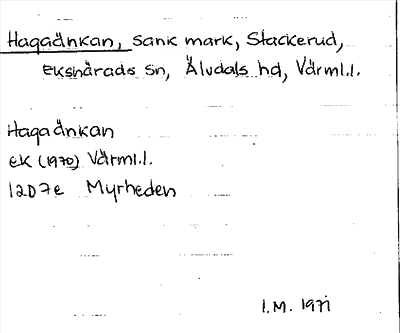 Hagaänkan, sank mark, Stackerud,
Ekshärads sn, Älvdals hd, Värml.l.
Hagaänkan
ek (1970) Värml.l.
12D7e Myrheden
I.M. 1971